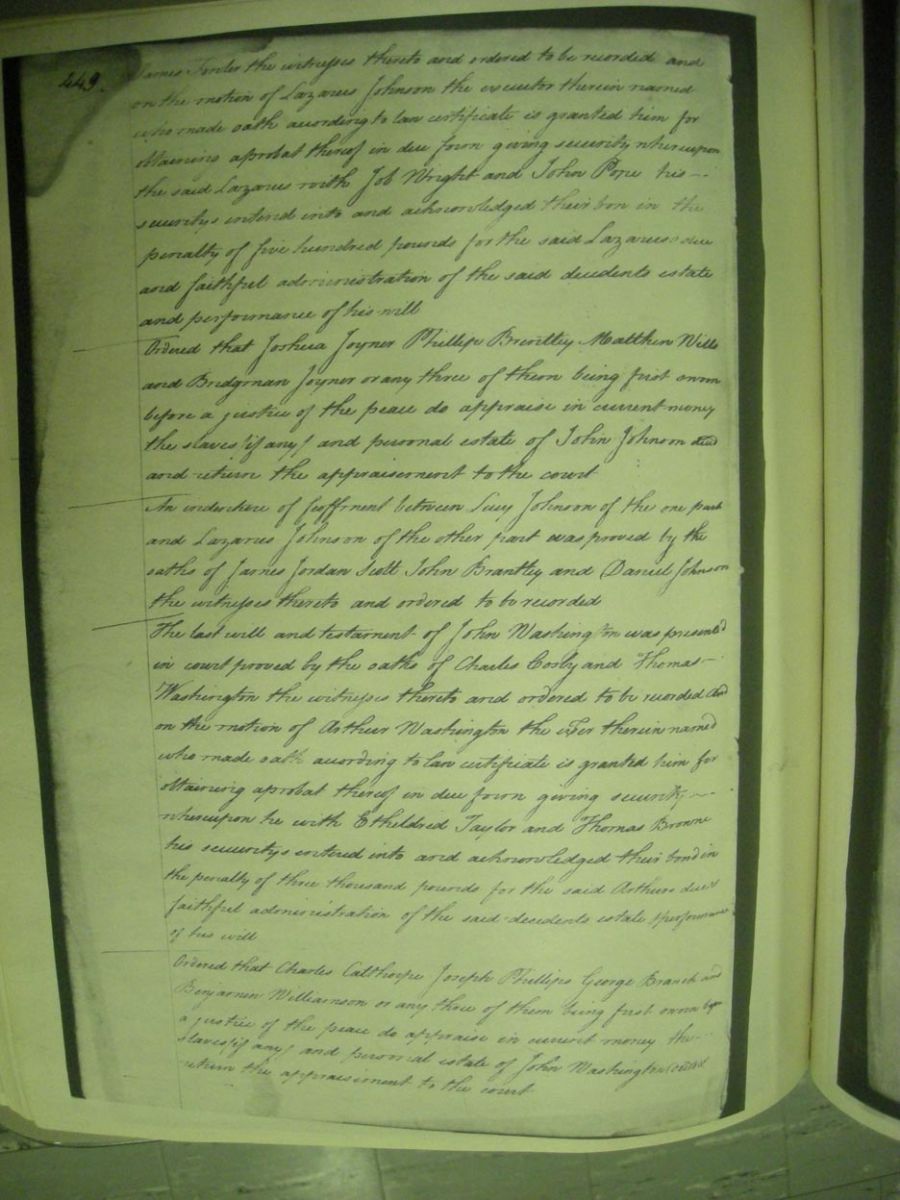 449.
James Tooler the witnesses thereto and ordered to be recorded and
on the motion of Lazarus Johnson the executor therein named
who made oath according to law certificate is granted him for
obtaining aprobat thereof in due form giving security whereupon
the said Lazarus with Job Wright and John Pope his
securitys entered into and acknowledged their bon in the
penalty of five hundred pounds for the said Lazarus's due
and faithful administration of the said decidents estate
and performance of his will
Ordered that Joshua Joyner Phillip Brentley Matthew Wills
and Bridgman Joyner or any three of them being first sworn
before a justice of the peace do appraise in current money
the slaves (if any) and personal estate of John Johnson decd
and return the appraisement to the court
An indenture of feoffment between Lucy Johnson of the one part
and Lazarus Johnson of the other part was proved by the
oaths of James Jordan Scott John Brantley and Daniel Johnson
the witnesses thereto and ordered to be recorded
The last will and testament of John Washington was presented
in court proved by the oaths of Charles Cosby and Thomas
Washington the witnesses thereto and ordered to be recorded And
on the motion of Arthur Washington the Exer therein named
who made oath according to law certificate is granted him for
obtaining aprobat thereof in due form giving security
whereupon he with Etheldred Taylor and Thomas Browne
his securitys entered into and acknowledged their bond in
the penalty of three thousand pounds for the said Arthurs due &
faithful administration of the said decidents estate & performance
of his will
Ordered that Charles Calthorpe Joseph Phillips George Branch and
Benjamin Williamson or any three of them being first sworn before
a justice of the peace do appraise in current money the
slaves (if any) and personal estate of John Washington deced &
return the appraisement to the court